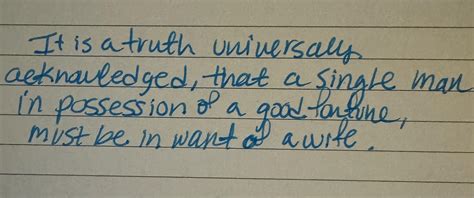 It is a truth universally
acknowledged, that a single man
in possession of a good fortune,
must be in want of a wife.